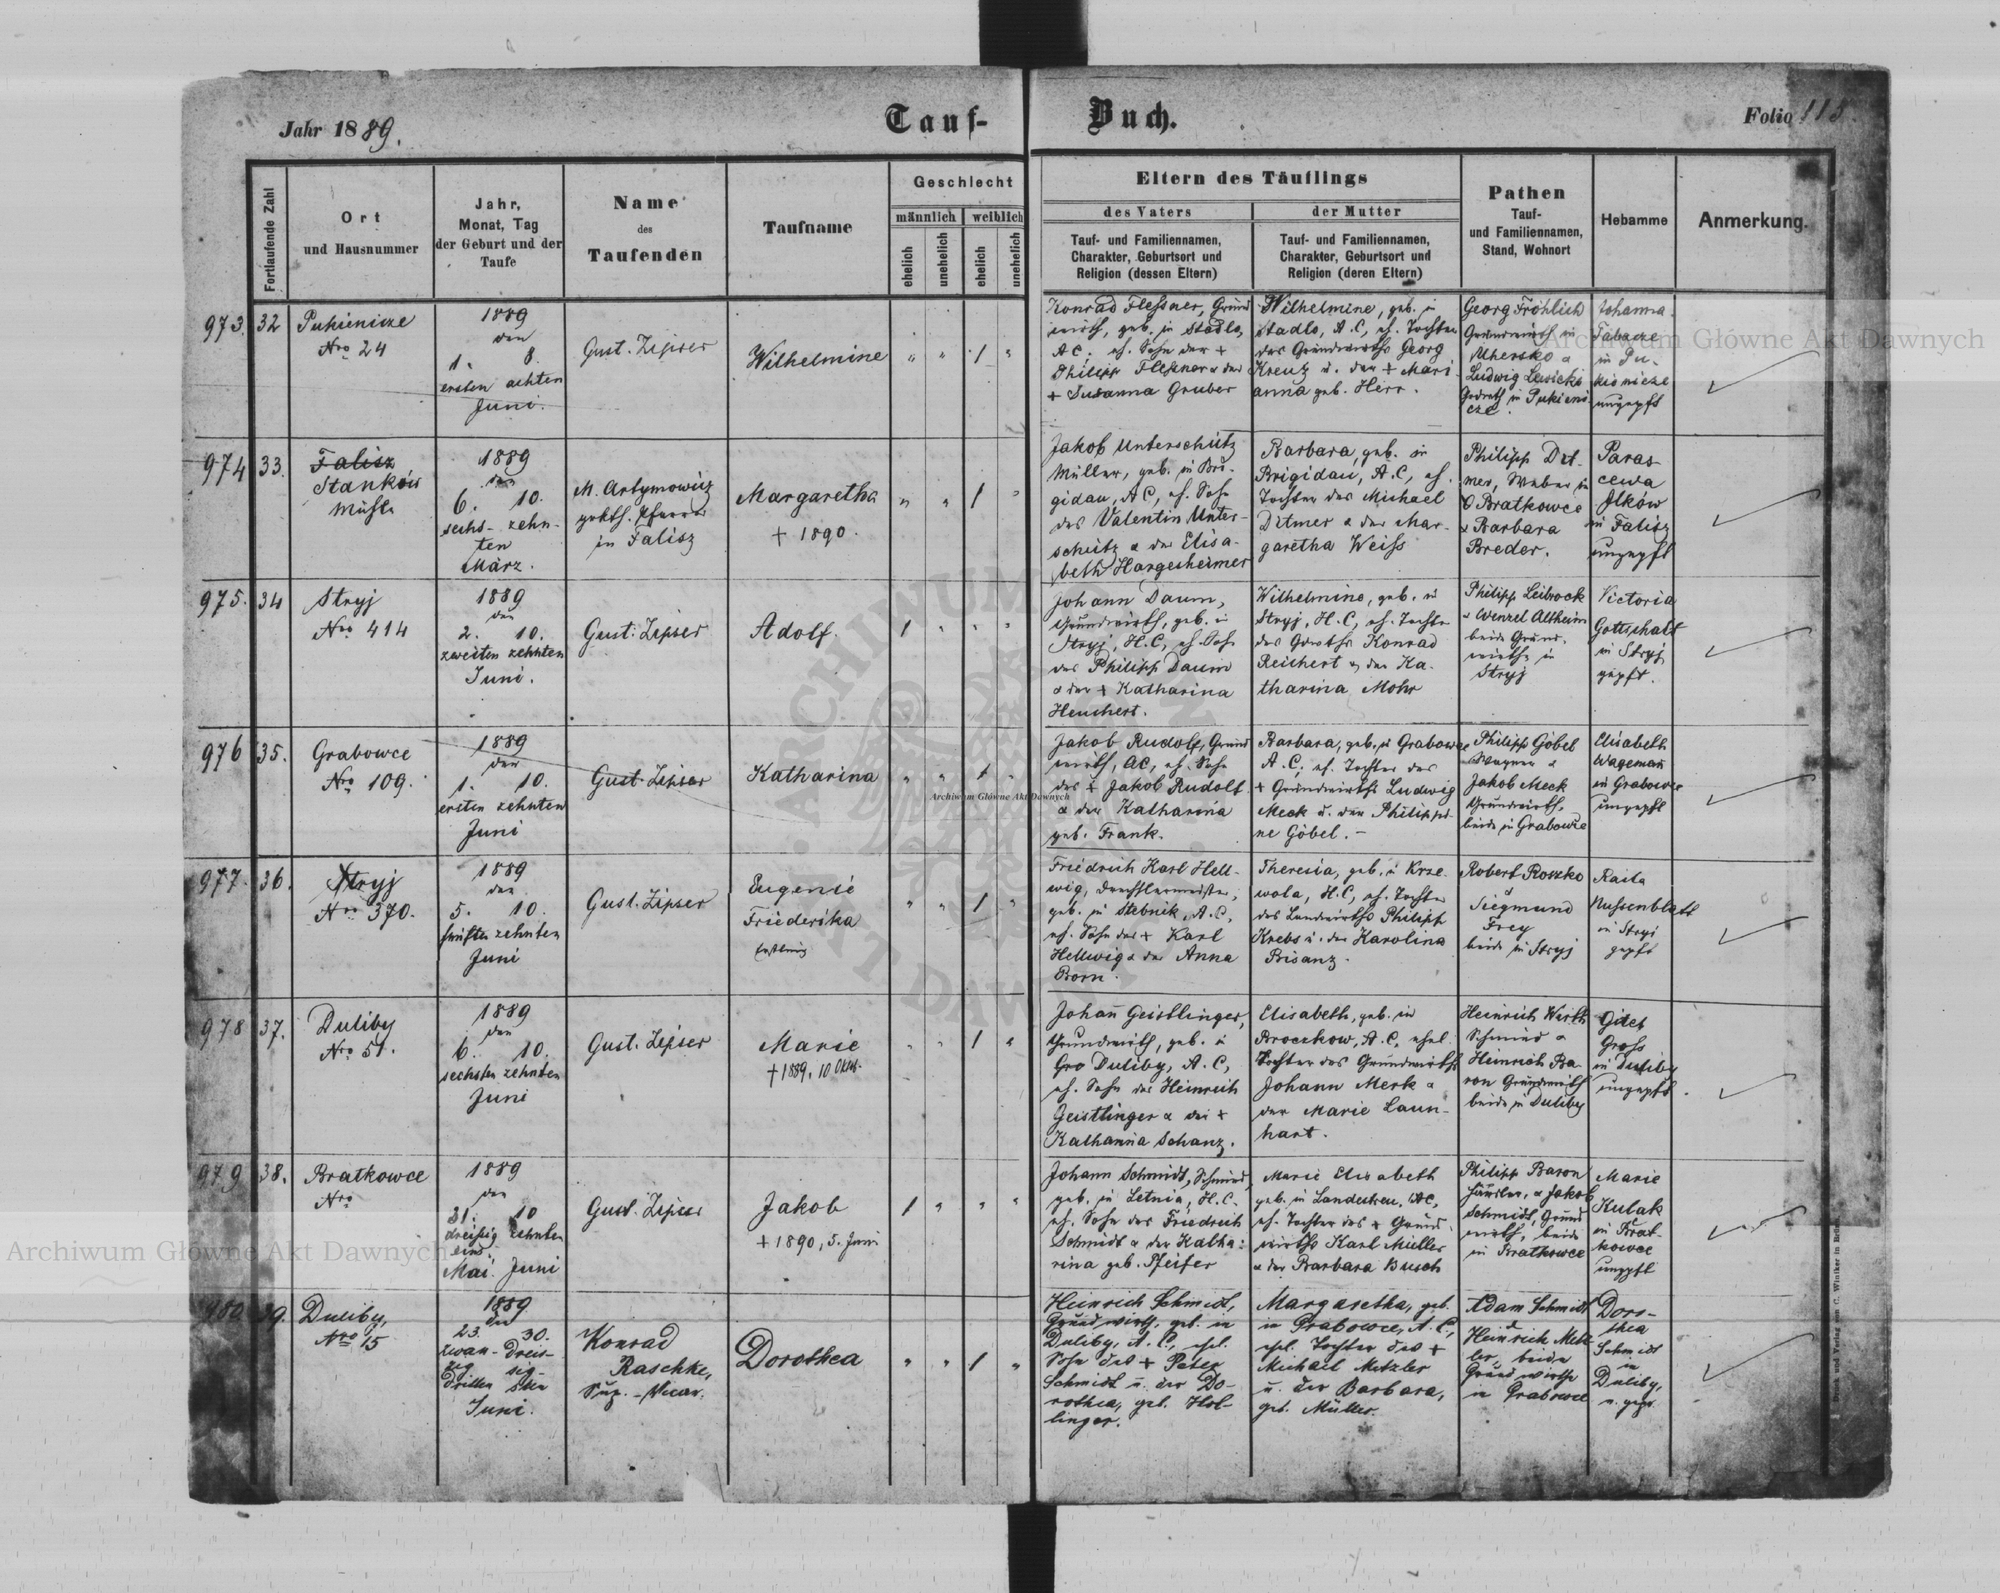 Jahr 1889.
Tauf-Buch.
Folio 115.
Fortlaufende Zahl
Ort
und Hausnummer
Jahr,
Monat, Tag
der Geburt und der
Taufe
Name
des
Taufenden
Taufname
Geschlecht
männlich
weiblich
ehelich
unehelich
ehelich
unehelich
Eltern des Täuflings
des Vaters
der Mutter
Tauf- und Familiennamen,
Charakter, Geburtsort und
Religion (dessen Eltern)
Tauf- und Familiennamen,
Charakter, Geburtsort und
Religion (deren Eltern)
Pathen
Tauf-
und Familiennamen,
Stand, Wohnort
Hebamme
Anmerkung.
973. 32
Pukienicze
Nro 24
1889
den
1. 8.
ersten achten
Juni.
Gust. Zipser
Wilhelmine
" " 1 "
Konrad Flessner, Grund
wirth, geb. in Stadlo,
A C. eh. Sohn der +
Philipp Flessner & der
+ Susanna Gruber
Wilhelmine, geb. in
Stadlo, A. C, eh. Tochter
des Grundwirths Georg
Kreuz u. der + Mari
anna geb. Herr.
Georg Fröhlich
Grundwirth in
Uhersko &
Ludwig
in Pukieni
cze.
Johanna
in Pu-
kienicze
ungepft
974 33.
Falisz
Stanków
Mühle
1889
den
6. 10.
sechs- zehn-
ten
März.
M. Artymowicz
gr. kth. Pfarrer
in Falisz
Margaretha
+ 1890.
" " 1 "
Jakob Unterschütz
Müller, geb. in Bri-
gidau, A C, eh. Sohn
des Valentin Unter-
schütz & der Elisa-
beth Hargesheimer
Barbara, geb. in
Brigidau, A. C, eh.
Tochter des Michael
Ditmer & der Mar-
garetha Weiss
Philipp Dit-
mer, Weber in
Bratkowce
& Barbara
Breder.
Paras-
cewa
Ilków
in Falisz
ungepft
975. 34
Stryj
Nro 414
1889
den
2. 10.
zweiten zehnten
Juni.
Gust. Zipser
Adolf.
1 " " "
Johann Daum,
Grundwirth, geb. in
Stryj, H. C, eh. Sohn
des Philipp Daum
& der + Katharina
Heuchert.
Wilhelmine, geb. in
Stryj, H. C, eh. Tochter
des Konrad
Reichert & der Ka-
tharina Mohr
Philipp Leibrock
& Wenzel Altheim
beide Grund-
wirthe in
Stryj
Victoria
Gottschalk
in Stryj
gepft.
976 35.
Grabowce
Nro 109.
1889
den
1. 10.
ersten zehnten
Juni
Gust. Zipser
Katharina
" " 1 "
Jakob Rudolf, Grund
wirth, AC, eh. Sohn
des + Jakob Rudolf
& der Katharina
geb. Frank.
Barbara, geb. in Grabowce
A. C, eh. Tochter des
+ Grundwirths Ludwig
Meck u. der Philippi-
ne Göbel. -
Philipp Göbel
Wagner &
Jakob Meck
Grundwirth,
beide in Grabowce
Elisabeth
Wagemann
in Grabowce
ungepft
977. 36.
Stryj
Nro 370.
1889
den
5. 10.
fünften zehnten
Juni
Gust. Zipser
Eugenie
Friederika
" " 1 "
Friedrich Karl Hell-
wig, Drechslermeister,
geb. in Stebnik, A. C,
eh. Sohn des + Karl
Hellwig & der Anna
Born.
Theresia, geb. in Krze-
wola, H. C, eh. Tochter
des Landwirths Philipp
Krebs u. der Karolina
Bisanz.
Robert Roszko
&
Siegmund
Frey
beide in Stryj
Raila
Nussenblatt
in Stryj
gepft
978 37.
Duliby
Nro 51.
1889
den
6. 10.
sechsten zehnten
Juni
Gust. Zipser
Marie
+ 1889, 10 Oktob.
" " 1 "
Johann Geistlinger,
Grundwirth, geb. in
Duliby, A. C,
eh. Sohn des Heinrich
Geistlinger & der +
Katharina Schanz.
Elisabeth, geb. in
Broczkow, A. C, ehel.
Tochter des Grundwirths
Johann Merk &
der Marie Laun-
hart.
Heinrich Warth
Schmied &
Heinrich Ba-
ron Grundwirth
beide in Duliby
Gitel
Gross
in Duliby
ungepft.
979 38.
Bratkowce
Nro
1889
den
31. 10
dreißig zehnten
eins.
Mai. Juni
Gust. Zipser
Jakob
+ 1890, 5. Juni
1 " " "
Johann Schmidt, Schmied,
geb. in Letnia, H. C.
eh. Sohn des Friedrich
Schmidt & der Katha-
rina geb. Pfeifer
Marie Elisabeth
geb. in Landestreu, AC,
eh. Tochter des + Grund
wirths Karl Müller
& der Barbara Busch
Philipp Baron
Händler, & Jakob
Schmidt, Grund
wirth, beide
in Bratkowce
Marie
Kulak
in Brat-
kowce
ungpft
980 39.
Duliby,
Nro 15
1889
den
23. 30.
zwan- dreis-
zig sig-
dritten sten
Juni.
Konrad
Raschke,
Sup. - Vicar.
Dorothea
" " 1 "
Heinrich Schmidt,
Grundwirth, geb. in
Duliby, A. C., ehel.
Sohn des + Peter
Schmidt u. der Do-
rothea, geb. Hol-
linger.
Margaretha, geb.
in Grabowce, A. C.,
ehl. Tochter des +
Michael Metzler
u. der Barbara,
geb. Müller.
Adam Schmidt
&
Heinrich Metz-
ler, beide
Grundwirthe
in Grabowce
Doro-
thea
Schmidt
in
Duliby,
u. gepr.
Druck und Verlag von C. Winiker in Brünn.
Archiwum Główne Akt Dawnych
Archiwum Główne Akt Dawnych
Archiwum Główne Akt Dawnych